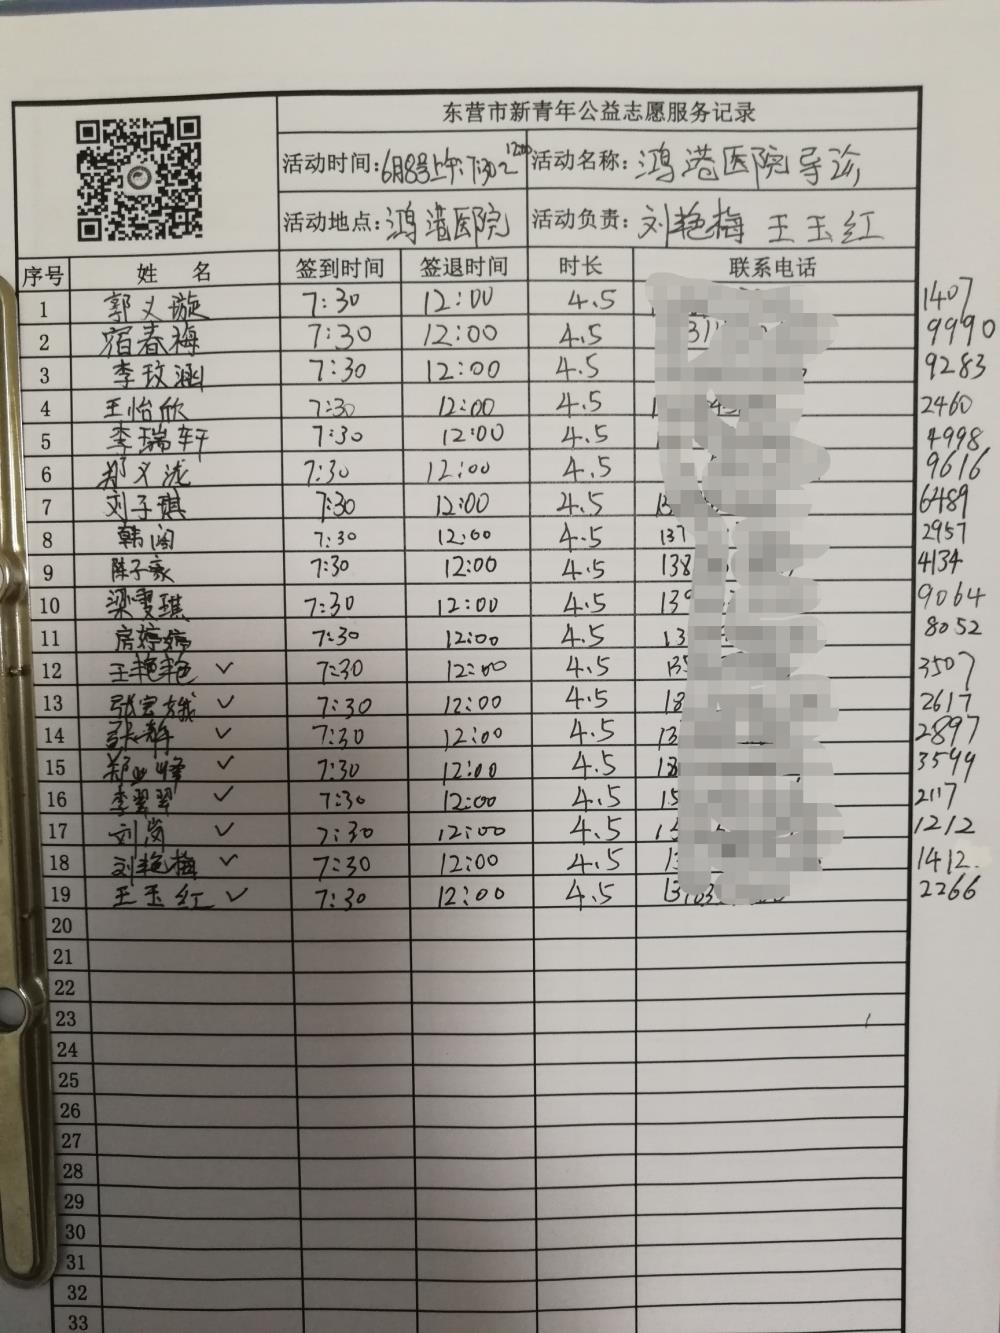 东营市新青年公益志愿服务记录
活动时间:6月8号上午7:30~12:00 活动名称:鸿港医院导诊
活动地点:鸿港医院 活动负责:刘艳梅 王玉红
序号 姓名 签到时间 签退时间 时长 联系电话
1 郭义璇 7:30 12:00 4.5 1407
2 宿春梅 7:30 12:00 4.5 9990
3 李玟涵 7:30 12:00 4.5 9283
4 王怡欣 7:30 12:00 4.5 2460
5 李瑞轩 7:30 12:00 4.5 4998
6 郑义泷 7:30 12:00 4.5 9616
7 刘子琪 7:30 12:00 4.5 6489
8 韩阔 7:30 12:00 4.5 137 2957
9 陈子豪 7:30 12:00 4.5 138 4134
10 梁雯琪 7:30 12:00 4.5 9064
11 房婷婷 7:30 12:00 4.5 8052
12 王艳艳 ✓ 7:30 12:00 4.5 3507
13 张宝娥 ✓ 7:30 12:00 4.5 18 2617
14 张辉 ✓ 7:30 12:00 4.5 2897
15 郑业峰 ✓ 7:30 12:00 4.5 3599
16 李翠翠 ✓ 7:30 12:00 4.5 15 2117
17 刘岗 ✓ 7:30 12:00 4.5 1212
18 刘艳梅 ✓ 7:30 12:00 4.5 1412
19 王玉红 ✓ 7:30 12:00 4.5 2266
20
21
22
23
24
25
26
27
28
29
30
31
32
33